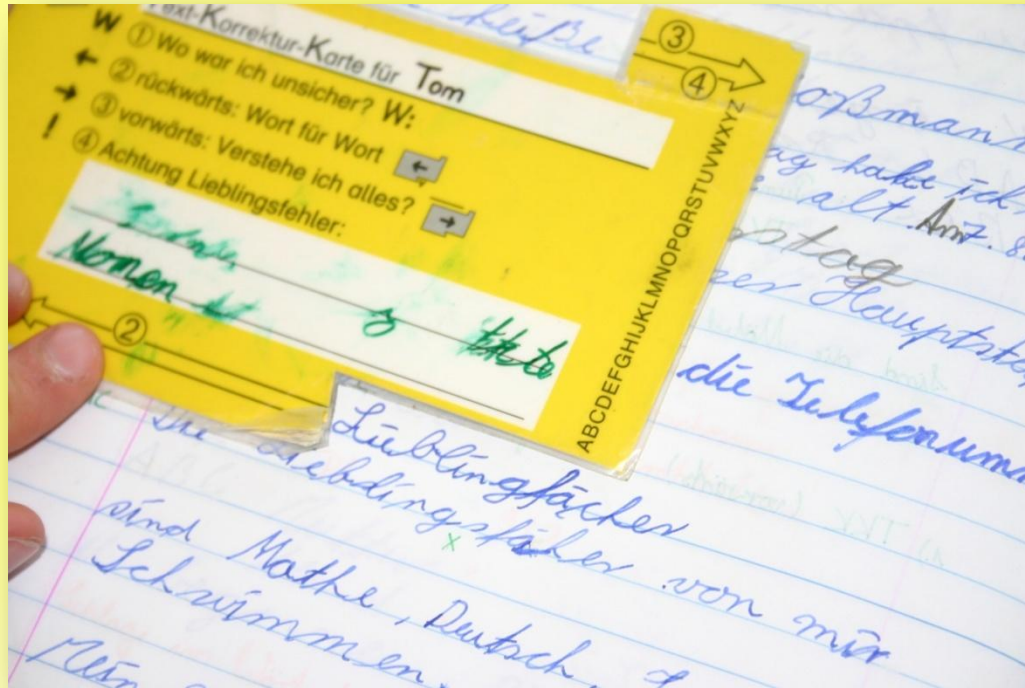 heiße
Text-Korrektur-Karte für Tom
W ① Wo war ich unsicher? W:
← ② rückwärts: Wort für Wort ←
→ ③ vorwärts: Verstehe ich alles? →
! ④ Achtung Lieblingsfehler:
Nomen
②
③
④
ABCDEFGHIJKLMNOPQRSTUVWXYZ
oßman
ag habe ich
alt. Am 7.
stag
er Hauptste
die Telefonum
Lieblingfächer
Die Liebdingsfäher von mir
x
sind Mathe, Deutsch,
Schwimmen.
Mein